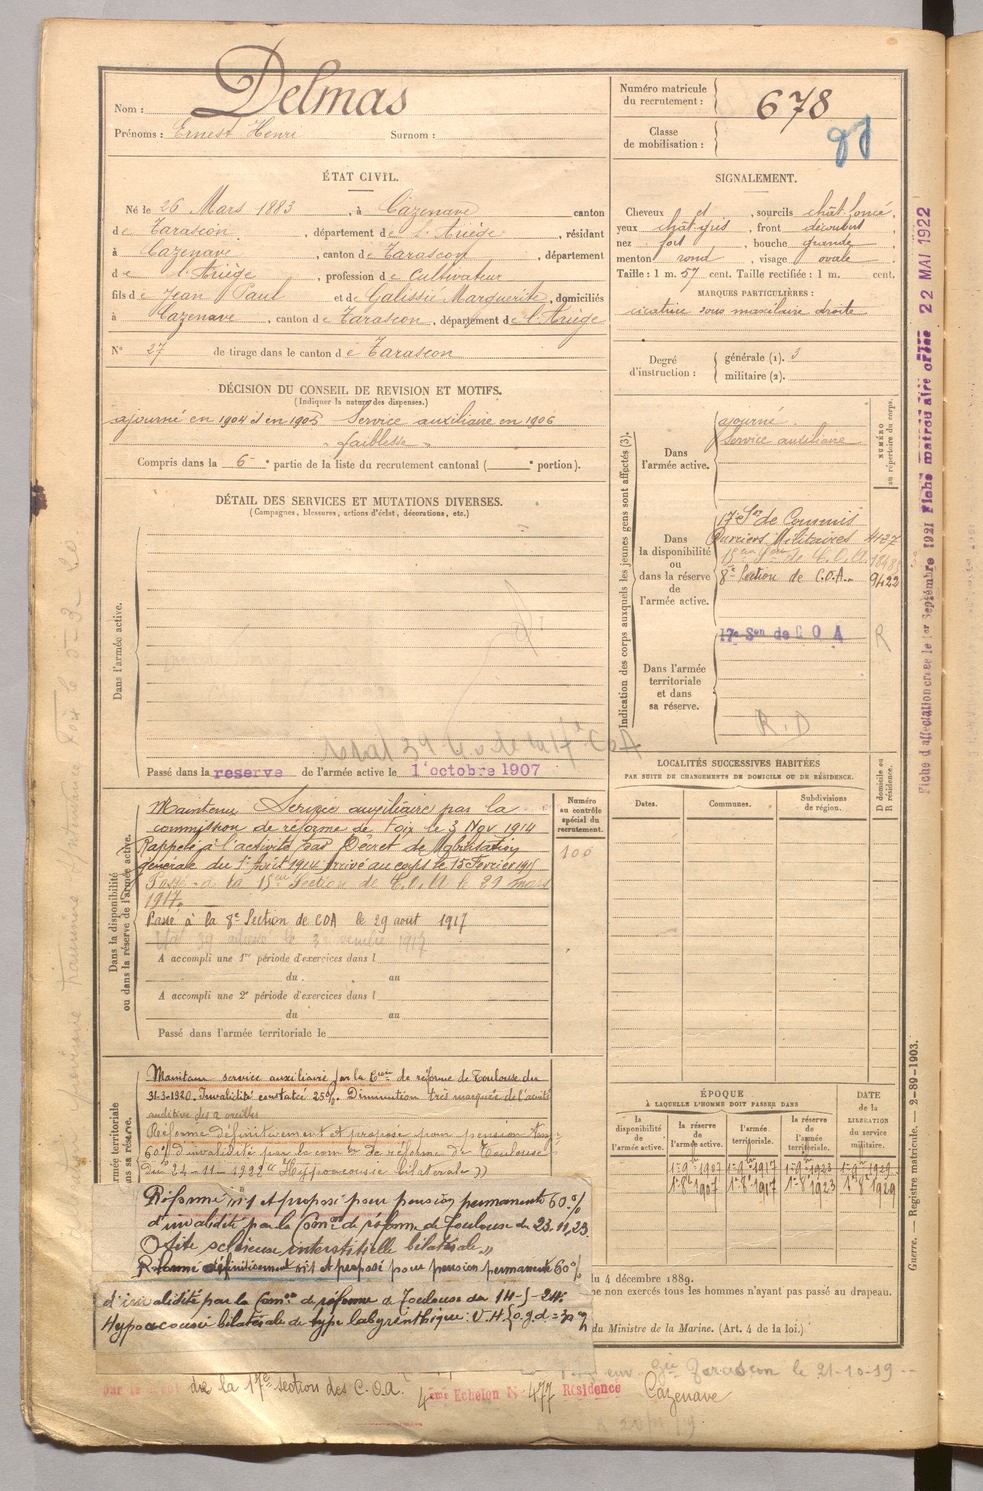 Nom : Delmas
Prénoms : Ernest Henri Surnom :
Numéro matricule du recrutement : 678
Classe de mobilisation :
ÉTAT CIVIL.
Né le 26 Mars 1883, à Cazenave canton
de Tarascon, département de l'Ariège, résidant
à Cazenave, canton de Tarascon, département
de l'Ariège, profession de Cultivateur
fils de Jean Paul et de Galissié Marguerite, domiciliés
à Cazenave, canton de Tarascon, département de l'Ariège
N° 27 de tirage dans le canton de Tarascon
SIGNALEMENT.
Cheveux et sourcils chât. foncé,
yeux chât. gris, front découvert,
nez fort, bouche grande,
menton rond, visage ovale.
Taille : 1 m. 57 cent. Taille rectifiée : 1 m. cent.
MARQUES PARTICULIÈRES :
cicatrice sous maxilaire droite
Degré d'instruction : générale (1). 3
militaire (2).
DÉCISION DU CONSEIL DE REVISION ET MOTIFS.
(Indiquer la nature des dispenses.)
ajourné en 1904 et en 1905 Service auxiliaire en 1906
" faiblesse "
Compris dans la 6e partie de la liste du recrutement cantonal ( e portion).
DÉTAIL DES SERVICES ET MUTATIONS DIVERSES.
(Campagnes, blessures, actions d'éclat, décorations, etc.)
Dans l'armée active.
Passé dans la reserve de l'armée active le 1 octobre 1907
Indication des corps auxquels les jeunes gens sont affectés (3).
NUMÉRO au répertoire du corps.
Dans l'armée active.
ajourné
Service auxiliaire
Dans la disponibilité ou dans la réserve de l'armée active.
17e Son de Commis
Ouvriers Militaires 4127
8e Section de C.O.A. 9422
Dans l'armée territoriale et dans sa réserve.
17e Son de C O A R
R.D
LOCALITÉS SUCCESSIVES HABITÉES
PAR SUITE DE CHANGEMENTS DE DOMICILE OU DE RÉSIDENCE.
Dates. Communes. Subdivisions de région. D domicile ou R résidence.
Dans la disponibilité ou dans la réserve de l'armée active.
Numéro au contrôle spécial du recrutement.
100
Maintenu Service auxiliaire par la
commission de réforme de Foix le 3 Nov 1914
Rappelé à l'activité par Décret de Mobilisation
générale du 1er Août 1914 Arrivé au corps le 15 Février 1915
Passé à la 15eme Section de C.O.A le 21 mars
1917.
Passé à la 8e Section de COA le 29 aout 1917
A accompli une 1re période d'exercices dans l
du au
A accompli une 2e période d'exercices dans l
du au
Passé dans l'armée territoriale le
Maintenu service auxiliaire par la Con de réforme de Toulouse du
31-3-1920. Invalidité constatée 25%. Diminution très marquée de l'acuité
auditive des 2 oreilles
Réformé définitivement et proposé pour pension temp
60% d'invalidité par la com de réforme de Toulouse
du 24-11-1922 " Hypoacousie bilatérale "
Réformé n°1 et proposé pour pension permanente 60%
d'invalidité par la Com de réforme de Toulouse du 23.11.23
Otite scléreuse interstitielle bilatérale "
Réformé définitivement n°1 et proposé pour pension permanente 60%
d'invalidité par la Com de réforme de Toulouse du
Hypoacousie bilatérale de type labyrinthique : V.H
ÉPOQUE
À LAQUELLE L'HOMME DOIT PASSER DANS
la disponibilité de l'armée active. la réserve de l'armée active. l'armée territoriale. la réserve de l'armée territoriale. DATE de la LIBÉRATION du service militaire.
1er 9bre 1907 1er 9bre 1917 1er 9bre 1923 1er 9bre 1929
1er 8bre 1907 1er 8bre 1917 1er 8bre 1923 1er 8bre 1929
du 4 décembre 1889.
ne non exercés tous les hommes n'ayant pas passé au drapeau.
du Ministre de la Marine. (Art. 4 de la loi.)
Tarascon le 21-10-19
de la 17e section des C.O.A. 4eme Echelon N° 477 Résidence Cazenave
Fiche d'affectation créée le 1er Septembre 1921 Fiche matricule créée 22 MAI 1922
Guerre. — Registre matricule. — 3-89-1903.